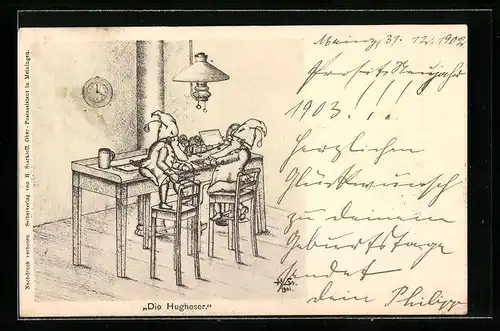 Mainz, 31. 12. 1902
Prosit Neujahr
1903.!!!
Herzlichen
Glückwunsch
zu deinem
Geburtstage
sendet
dein Philipp
„Die Hugheser.“
H. St.
1901.
Nachdruck verboten. Selbstverlag von H. Starkloff, Ober-Postassistent in Meiningen.